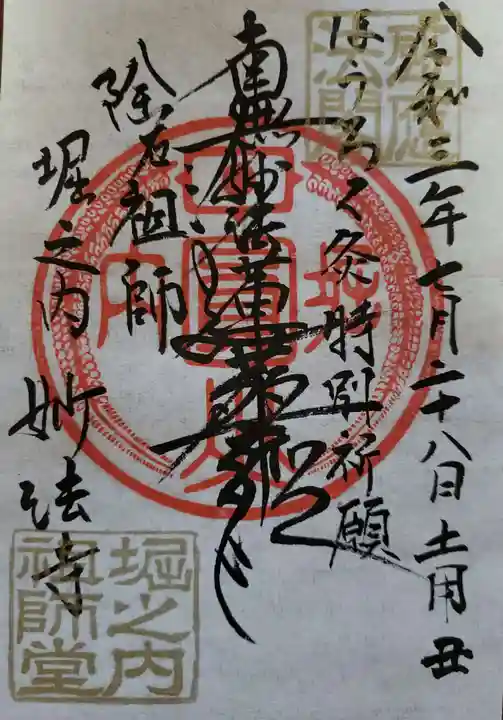 令和三年七月二十八日土用丑
ほうろく灸特別祈願
南無妙法蓮華経
除厄祖師
堀之内
妙法寺
堀之内
祖師堂